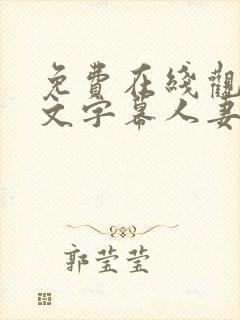 免費在綫觀
文字幕人妻
郭莹莹